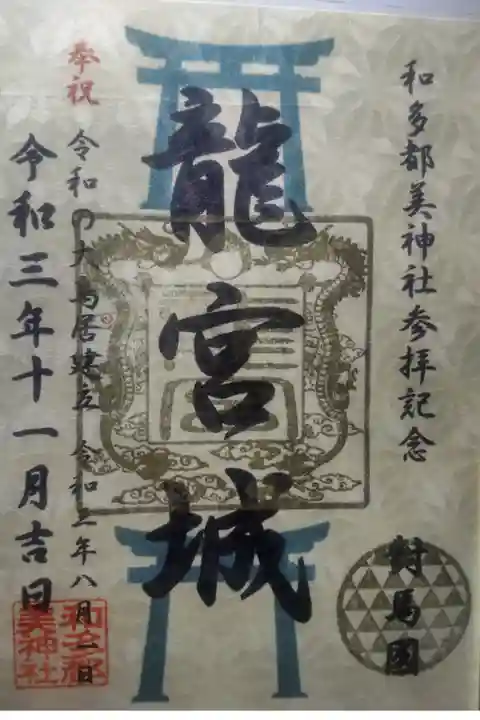 和多都美神社参拝記念
對馬國
龍宮城
奉祝 令和の大鳥居建立 令和三年八月一日
令和三年十一月吉日
和多都美神社